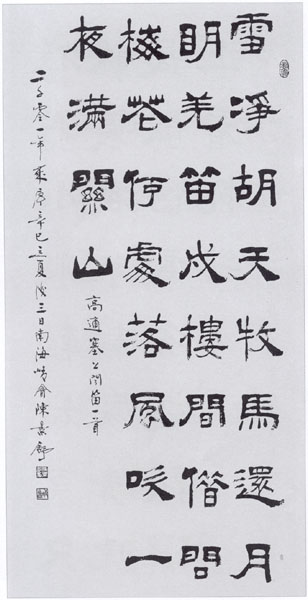 雪淨胡天牧馬還月
明羌笛戍樓間借問
梅花何處落風吹一
夜滿關山
高適塞上聞笛一首
二千零一年歲序辛巳立夏後三日南海陳景舒